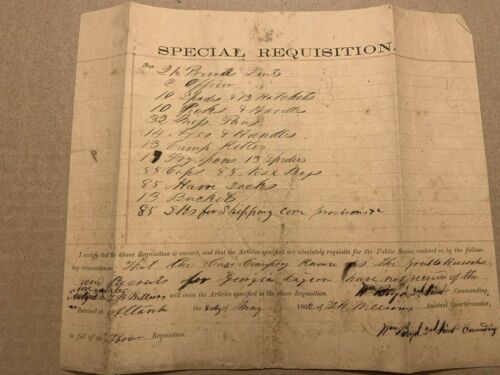 SPECIAL REQUISITION.
For 24 Tents
2 Officer
10 Spades & 13 Hatchets
10 Picks & Handles
32 Mess Pans
14 Axes & Handles
13 Camp Kettles
17 Fry pans 13 Spiders
85 Cups 85 Nose Bags
85 Haver Sacks
13 Buckets
85 for Shipping corn provisions &c
I certify that the above Requisition is correct, and that the Articles specified are absolutely requisite for the Public Service, rendered so by the following
circumstances: That the Company Known as the
are Recruits for Georgia Legion have not received the
will issue the Articles specified in the above Requisition. Wm Boyd 2nd Lieut Commanding
Received at Atlanta the day of May 1862 of Assistant Quartermaster,
in full of the Above Requisition. Wm Boyd 2nd Lieut Commanding